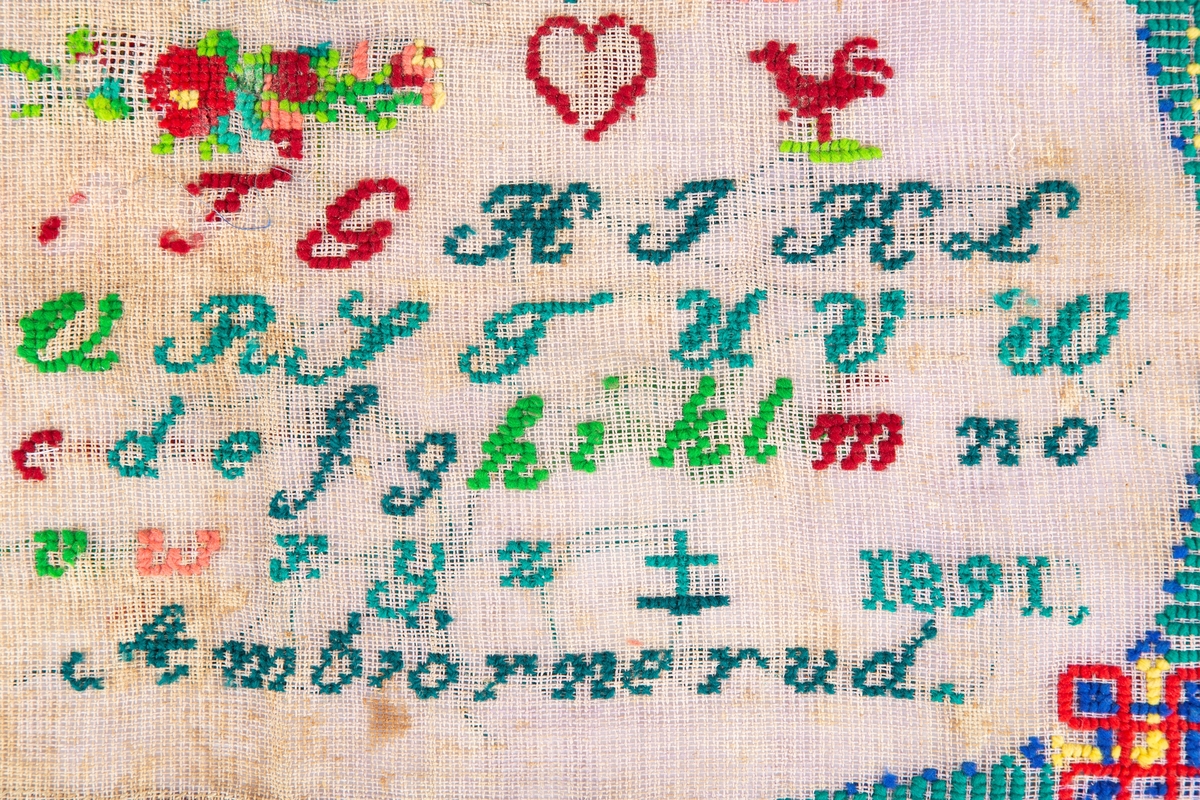 F G H I K L
U R S T U V W
c d e f g h i k l m n o
v w x y z 1891,
Ambiornerud.